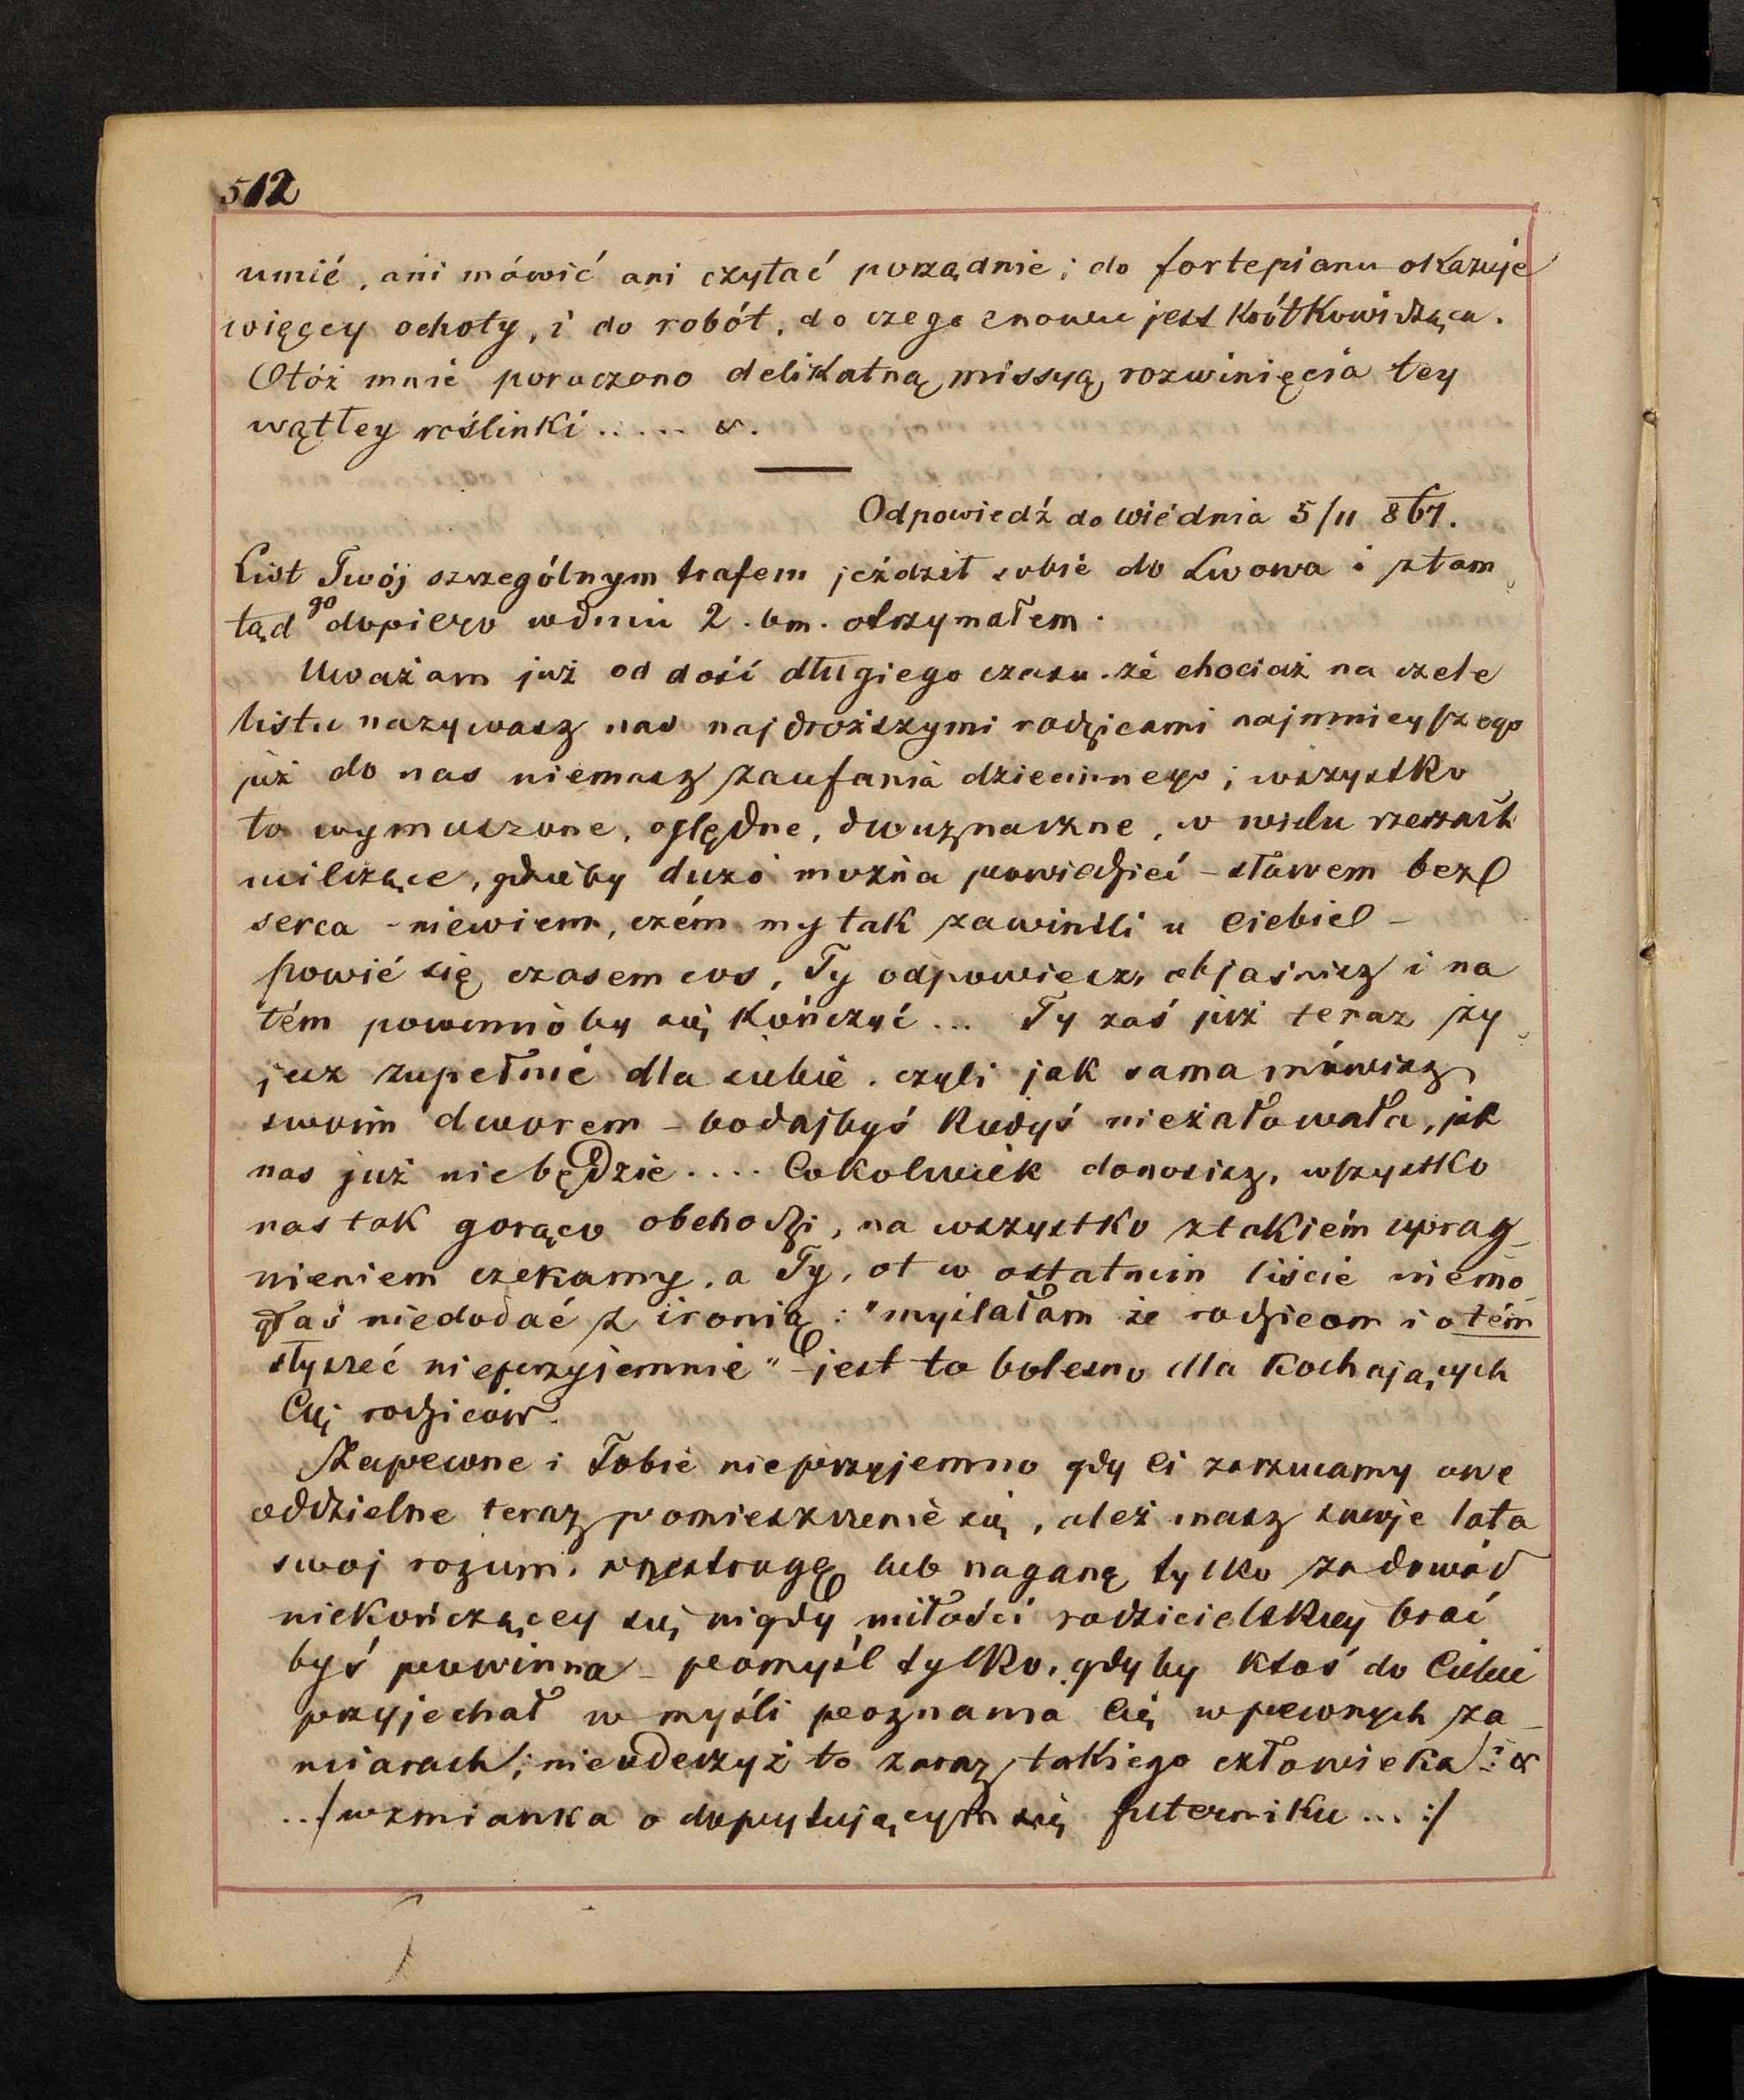 512
umié, ani mówić ani czytać porządnie; do fortepianu okazuje
więcey ochoty, i do robót, do czego znowu jest krótkowidząca.
Otóż mnie poruczono delikatną missyą rozwinięcia tey
wątłey roślinki ..... &.
Odpowiedź do Wiédnia 5/11 867.
List Twój szczególnym trafem jeździł sobie do Lwowa i ztam
tąd go dopiero wdniu 2. bm. otrzymałem.
Uważam już od dość długiego czasu. że chociaż na czele
listu nazywasz nas najdroższymi rodzicami najmnieyszego
już do nas niemasz zaufania dziecinnego; wszystko
to wymuszone, oględne, dwuznaczne, w wielu rzeczach
milczące, gdzieby dużo można powiedzieć – słowem bez
serca – niewiem, czém my tak zawinili u Ciebie –
powié się czasem cos, Ty odpowiesz, objaśnisz i na
tém powinnoby się kończyć... Ty zaś już teraz ży
jesz zupełnie dla siebie. czyli jak sama mówisz
swoim dworem – bodajbyś kiedyś nieżałowała, jak
nas już niebędzie .... Cokolwiek donosisz, wszystko
nas tak gorąco obchodzi, na wszystko ztakiém uprag_
nieniem czekamy, a Ty, ot w ostatnim liście niemo_
głaś niedodać z ironią: "myślałam że rodzicom i o tém
słyszeć nieprzyjemnie" – jest to bolesno dla kochających
Cię rodziców.
Zapewne i Tobie nieprzyjemno gdy Ci zarzucamy owe
oddzielne teraz pomieszczenie się, ależ masz swoje lata
swoj rozum, przestrogę lub naganę tylko za dowód
niekończącey się nigdy miłości rodzicielskiey brać
byś powinna – pomyśl tylko, gdyby ktoś do Ciebie
przyjechał w myśli poznania Cię w pewnych za_
miarach; nieuderzyż to zaraz takiego człowieka? &
../wzmianka o dopytującym się futerniku ... :/